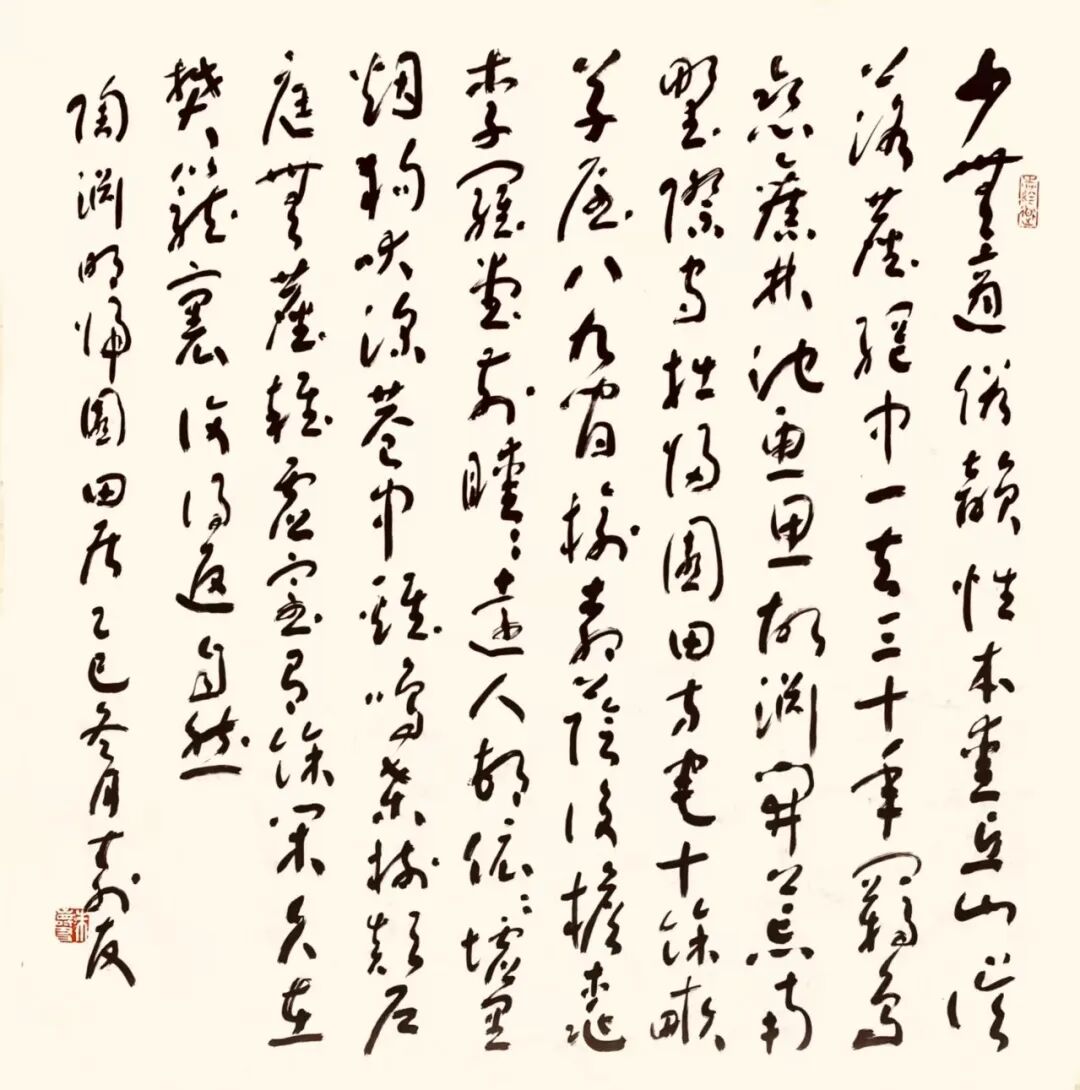 少無適俗韻性本愛丘山誤
落塵網中一去三十年羈鳥
戀舊林池魚思故淵開荒南
野際守拙歸園田方宅十餘畝
草屋八九間榆柳蔭後檐桃
李羅堂前曖〻遠人邨依〻墟里
烟狗吠深巷中雞鳴桑樹顛戶
庭無塵雜虛室有餘閑久在
樊籠裏復得返自然
陶淵明歸園田居乙巳冬月壽友
朱壽友